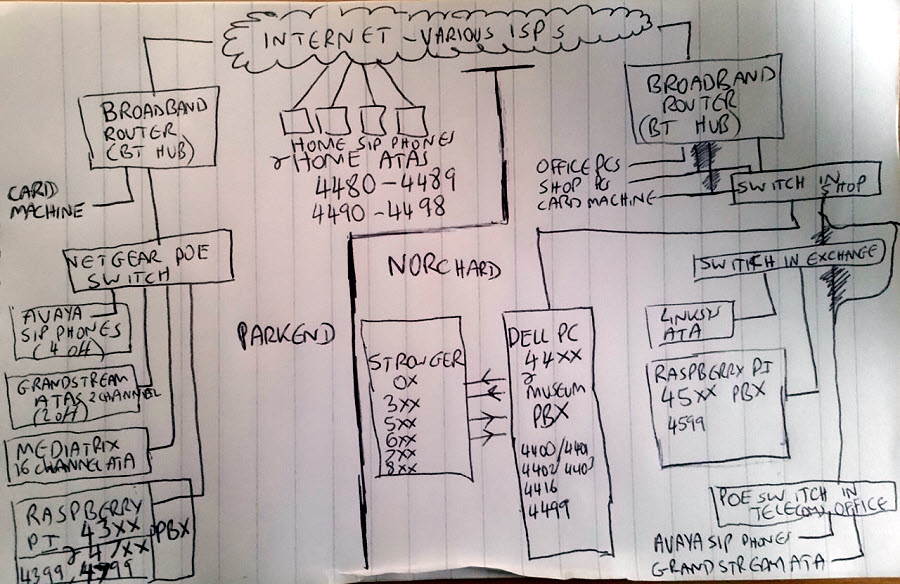 INTERNET - VARIOUS ISPS
BROADBAND
ROUTER
(BT HUB)
CARD
MACHINE
NETGEAR POE
SWITCH
AVAYA
SIP PHONES
(4 off)
GRANDSTREAM
ATAS 2 CHANNEL
(2 off)
MEDIATRIX
16 CHANNEL ATA
RASPBERRY
PI 43XX
& 47XX
4399, 4799
PBX
HOME SIP PHONES
& HOME ATAS
4480-4489
4490-4498
PARKEND
NORCHARD
STRONGER
0X
3XX
5XX
6XX
7XX
8XX
DELL PC
44XX
&
MUSEUM
PBX
4400/4401
4402/4403
4416
4499
BROADBAND
ROUTER
(BT HUB)
OFFICE PCS
SHOP PC
CARD MACHINE
SWITCH IN
SHOP
SWITCH IN EXCHANGE
LINKSYS
ATA
RASPBERRY PI
45XX PBX
4599
POE SWITCH IN
TELECOMS OFFICE
AVAYA SIP PHONES
GRANDSTREAM ATA